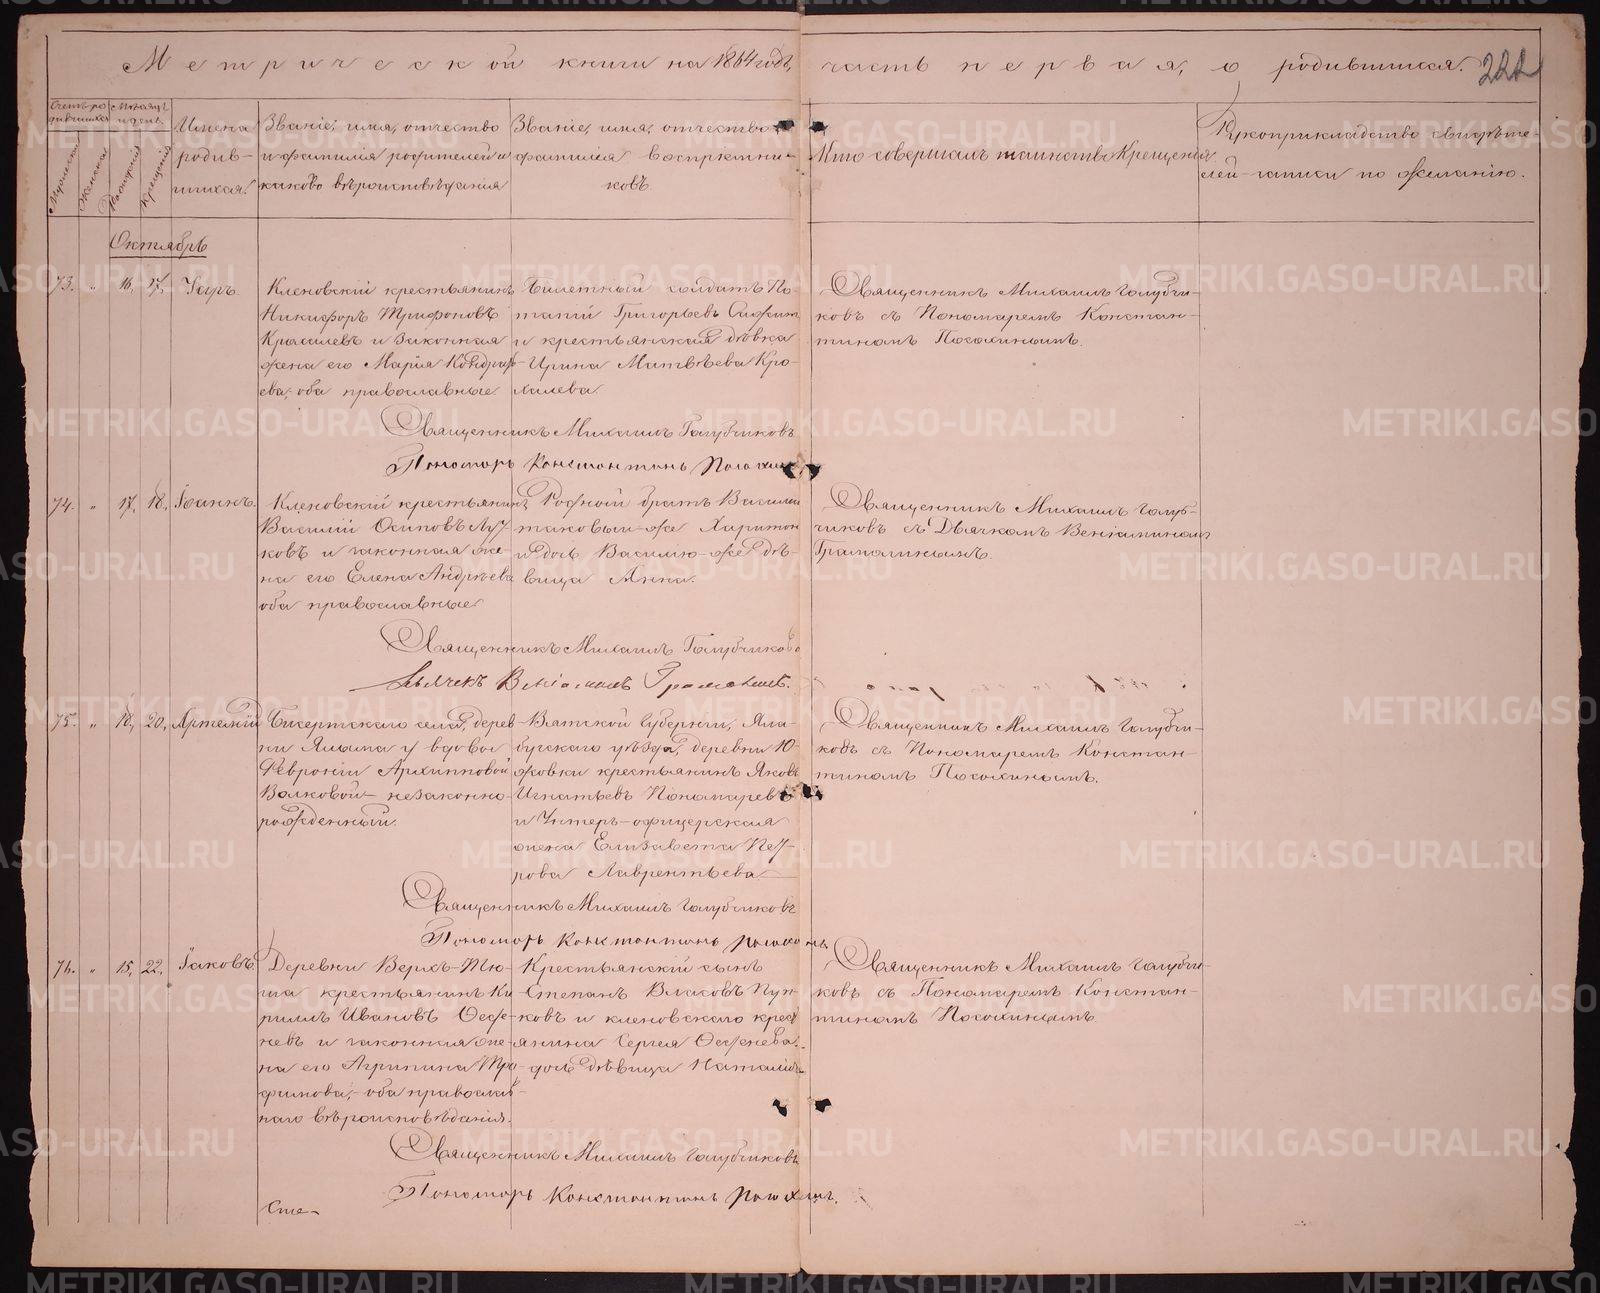 Метрической книги на 1864 годъ, часть первая, о родившихся. 222
Счетъ ро-
дившихся
Мѣсяцъ
и день.
Мужескій
Женскій
Рожденія
Крещенія
Имена
родив-
шихся.
Званіе, имя, отчество
и фамилія родителей и
каково вѣроисповѣданія
Званіе, имя, отчество и
фамилія воспріемни-
ковъ.
Кто совершалъ таинство Крещенія.
Рукоприкладство свидѣте-
лей записи по желанію.
Октябрь
73. " 16, 17,
Кленовскій крестьянинъ
Никифоръ Трифоновъ
и законная
жена его Марія
ева, оба православные.
Билетный солдатъ По-
тапій Григорьевъ
и крестьянская дѣвка
Ирина Матвѣева Кро-
халева.
Священникъ Михаилъ Голубчи-
ковъ съ Пономаремъ Констан-
тиномъ
Священникъ Михаилъ Голубчиковъ
Пономарь Константинъ
74. " 17, 18, Іоаннъ.
Кленовскій крестьянинъ
Василій Осиповъ
ковъ и законная же-
на его Елена Андреева
оба православные.
Родной братъ Василія
таковый-же Харитонъ
и дочь Василію-же дѣ-
вица Анна.
Священникъ Михаилъ Голуб-
чиковъ съ Дьячкомъ Веніаминомъ
Грамолинымъ.
Священникъ Михаилъ Голубчиковъ
Дьячекъ Веніаминъ Грамолинъ.
75. " 18, 20, Артемій
Бисертскаго села, дерев-
ни у вдовы
Февроніи Архипповой
Волковой незаконно-
рожденный.
Вятской губерніи, Яла-
бугскаго уѣзда, деревни Ю-
жовки крестьянинъ Яковъ
Игнатьевъ Пономаревъ
и Унтеръ-офицерская
жена Елизавета Пет-
рова Лаврентьева.
Священникъ Михаилъ Голубчи-
ковъ съ Пономаремъ Констан-
тиномъ
Священникъ Михаилъ Голубчиковъ
Пономарь Константинъ
76. " 15, 22, Іаковъ.
Деревни Верхъ-Тю-
ша крестьянинъ Ки-
риллъ Ивановъ
невъ и законная же-
на его Агрипина Тро-
фимова, оба православ-
наго вѣроисповѣданія.
Крестьянскій сынъ
Степанъ Власовъ
ковъ и кленовскаго крест-
янина Сергея
дочь дѣвица Наталія.
Священникъ Михаилъ Голубчи-
ковъ съ Пономаремъ Констан-
тиномъ
Священникъ Михаилъ Голубчиковъ
Пономарь Константинъ
METRIKI.GASO-URAL.RU